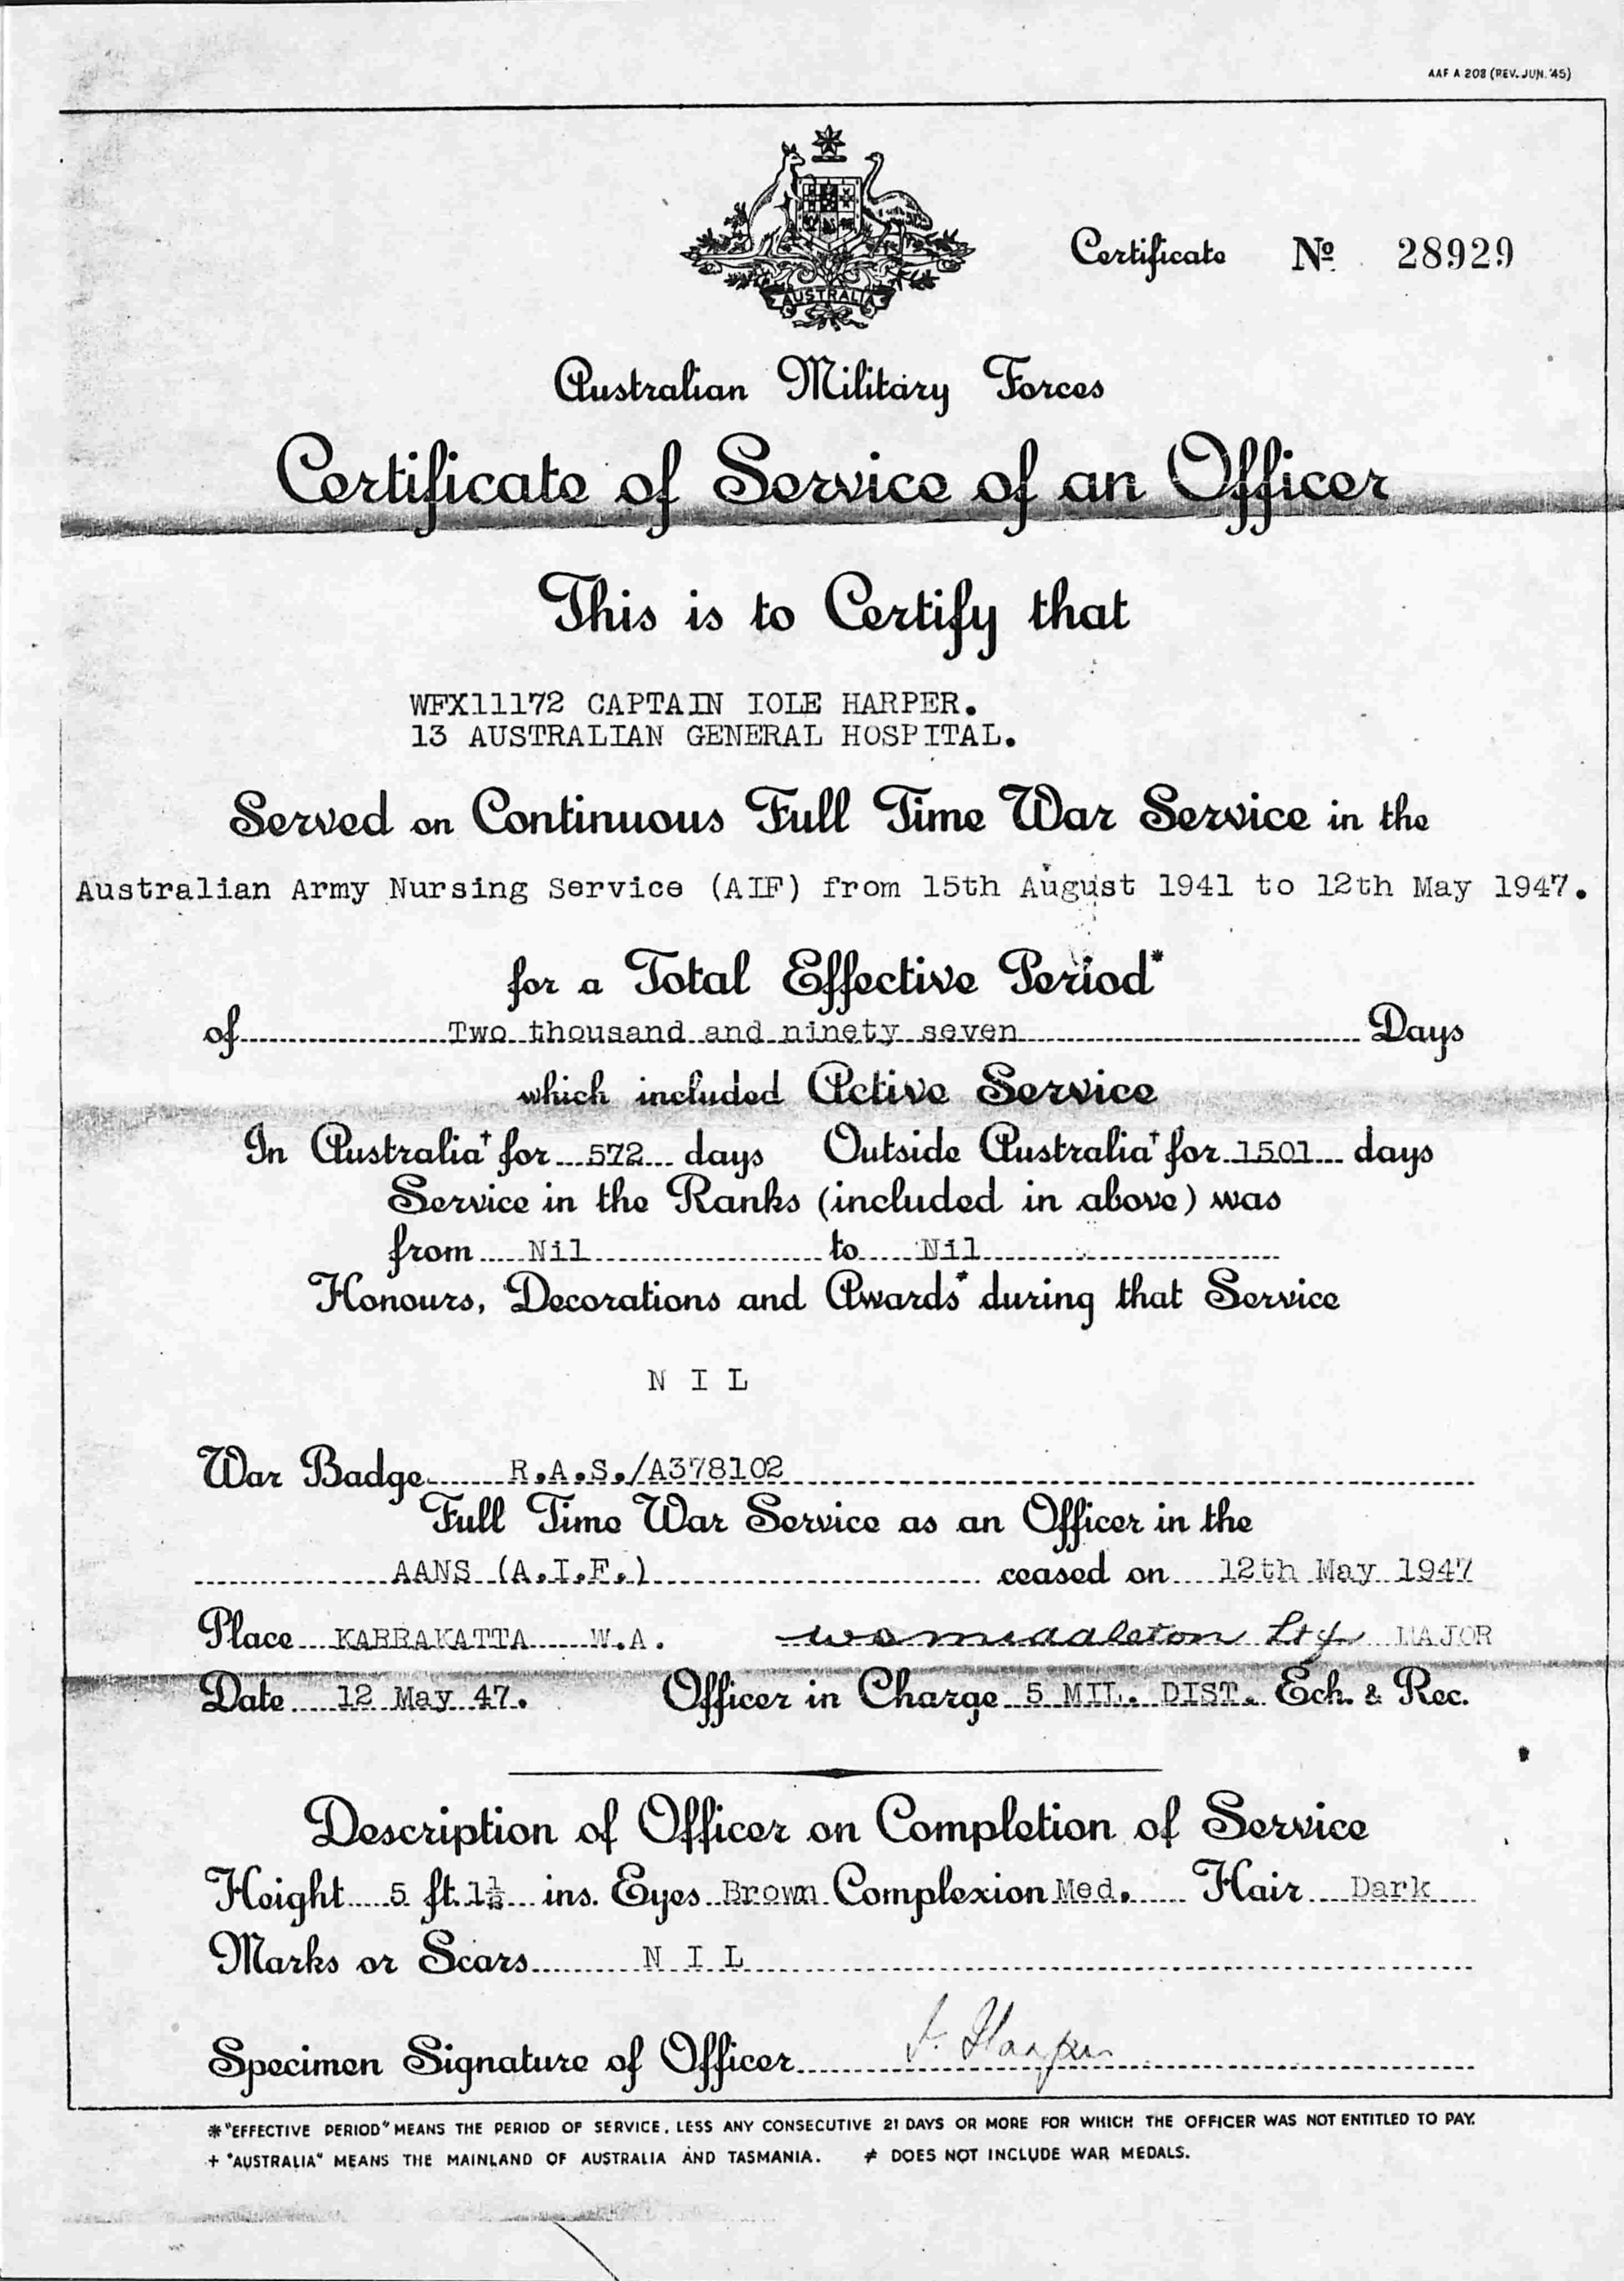 AAF A 208 (REV. JUN. '45)
AUSTRALIA
Certificate No 28929
Australian Military Forces
Certificate of Service of an Officer
This is to Certify that
WFX11172 CAPTAIN IOLE HARPER.
13 AUSTRALIAN GENERAL HOSPITAL.
Served on Continuous Full Time War Service in the
Australian Army Nursing Service (AIF) from 15th August 1941 to 12th May 1947.
for a Total Effective Period*
of Two thousand and ninety seven Days
which included Active Service
In Australia† for 572 days Outside Australia† for 1501 days
Service in the Ranks (included in above) was
from Nil to Nil
Honours, Decorations and Awards≠ during that Service
N I L
War Badge R.A.S./A378102
Full Time War Service as an Officer in the
AANS (A.I.F.) ceased on 12th May 1947
Place KARRAKATTA W.A. Middleton MAJOR
Date 12 May 47. Officer in Charge 5 MIL. DIST. Ech. & Rec.
Description of Officer on Completion of Service
Height 5 ft. 1½ ins. Eyes Brown Complexion Med. Hair Dark
Marks or Scars N I L
Specimen Signature of Officer I. Harper
*"EFFECTIVE PERIOD" MEANS THE PERIOD OF SERVICE, LESS ANY CONSECUTIVE 21 DAYS OR MORE FOR WHICH THE OFFICER WAS NOT ENTITLED TO PAY.
+ "AUSTRALIA" MEANS THE MAINLAND OF AUSTRALIA AND TASMANIA. ≠ DOES NOT INCLUDE WAR MEDALS.